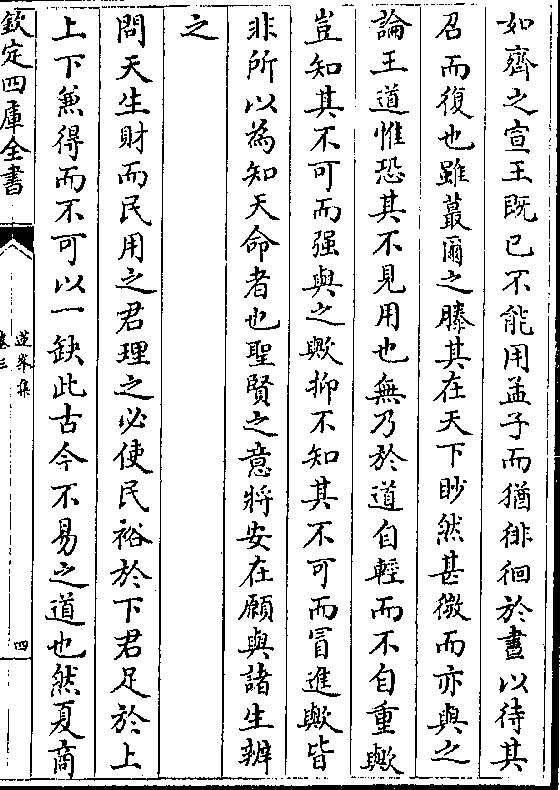 如齊之宣王既已不能用孟子而猶徘徊於晝以待其
召而復也雖蕞爾之滕其在天下眇然甚微而亦與之
論王道惟恐其不見用也無乃於道自輕而不自重歟
豈知其不可而强與之歟抑不知其不可而冒進歟皆
非所以為知天命者也聖賢之意將安在願與諸生辨
之
問天生財而民用之君理之必使民裕於下君足於上
上下兼得而不可以一缺此古今不易之道也然夏商
欽定四庫全書
蓮峯集
卷三
四